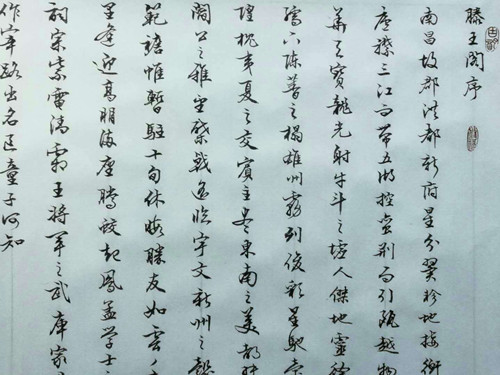 滕王阁序
南昌故郡洪都新府星分翼轸地接衡
庐襟三江而带五湖控蛮荆而引瓯越物
华天宝龍光射牛斗之墟人傑地靈徐
孺下陈蕃之榻雄州霧列俊彩星驰台
隍枕夷夏之交賓主尽东南之美都督
阎公之雅望棨戟遥临宇文新州之懿
範襜帷暫駐十旬休暇勝友如雲千
里逢迎高朋满座腾蛟起鳳孟学士之
詞宗紫電清霜王将军之武库家君
作宰路出名区童子何知